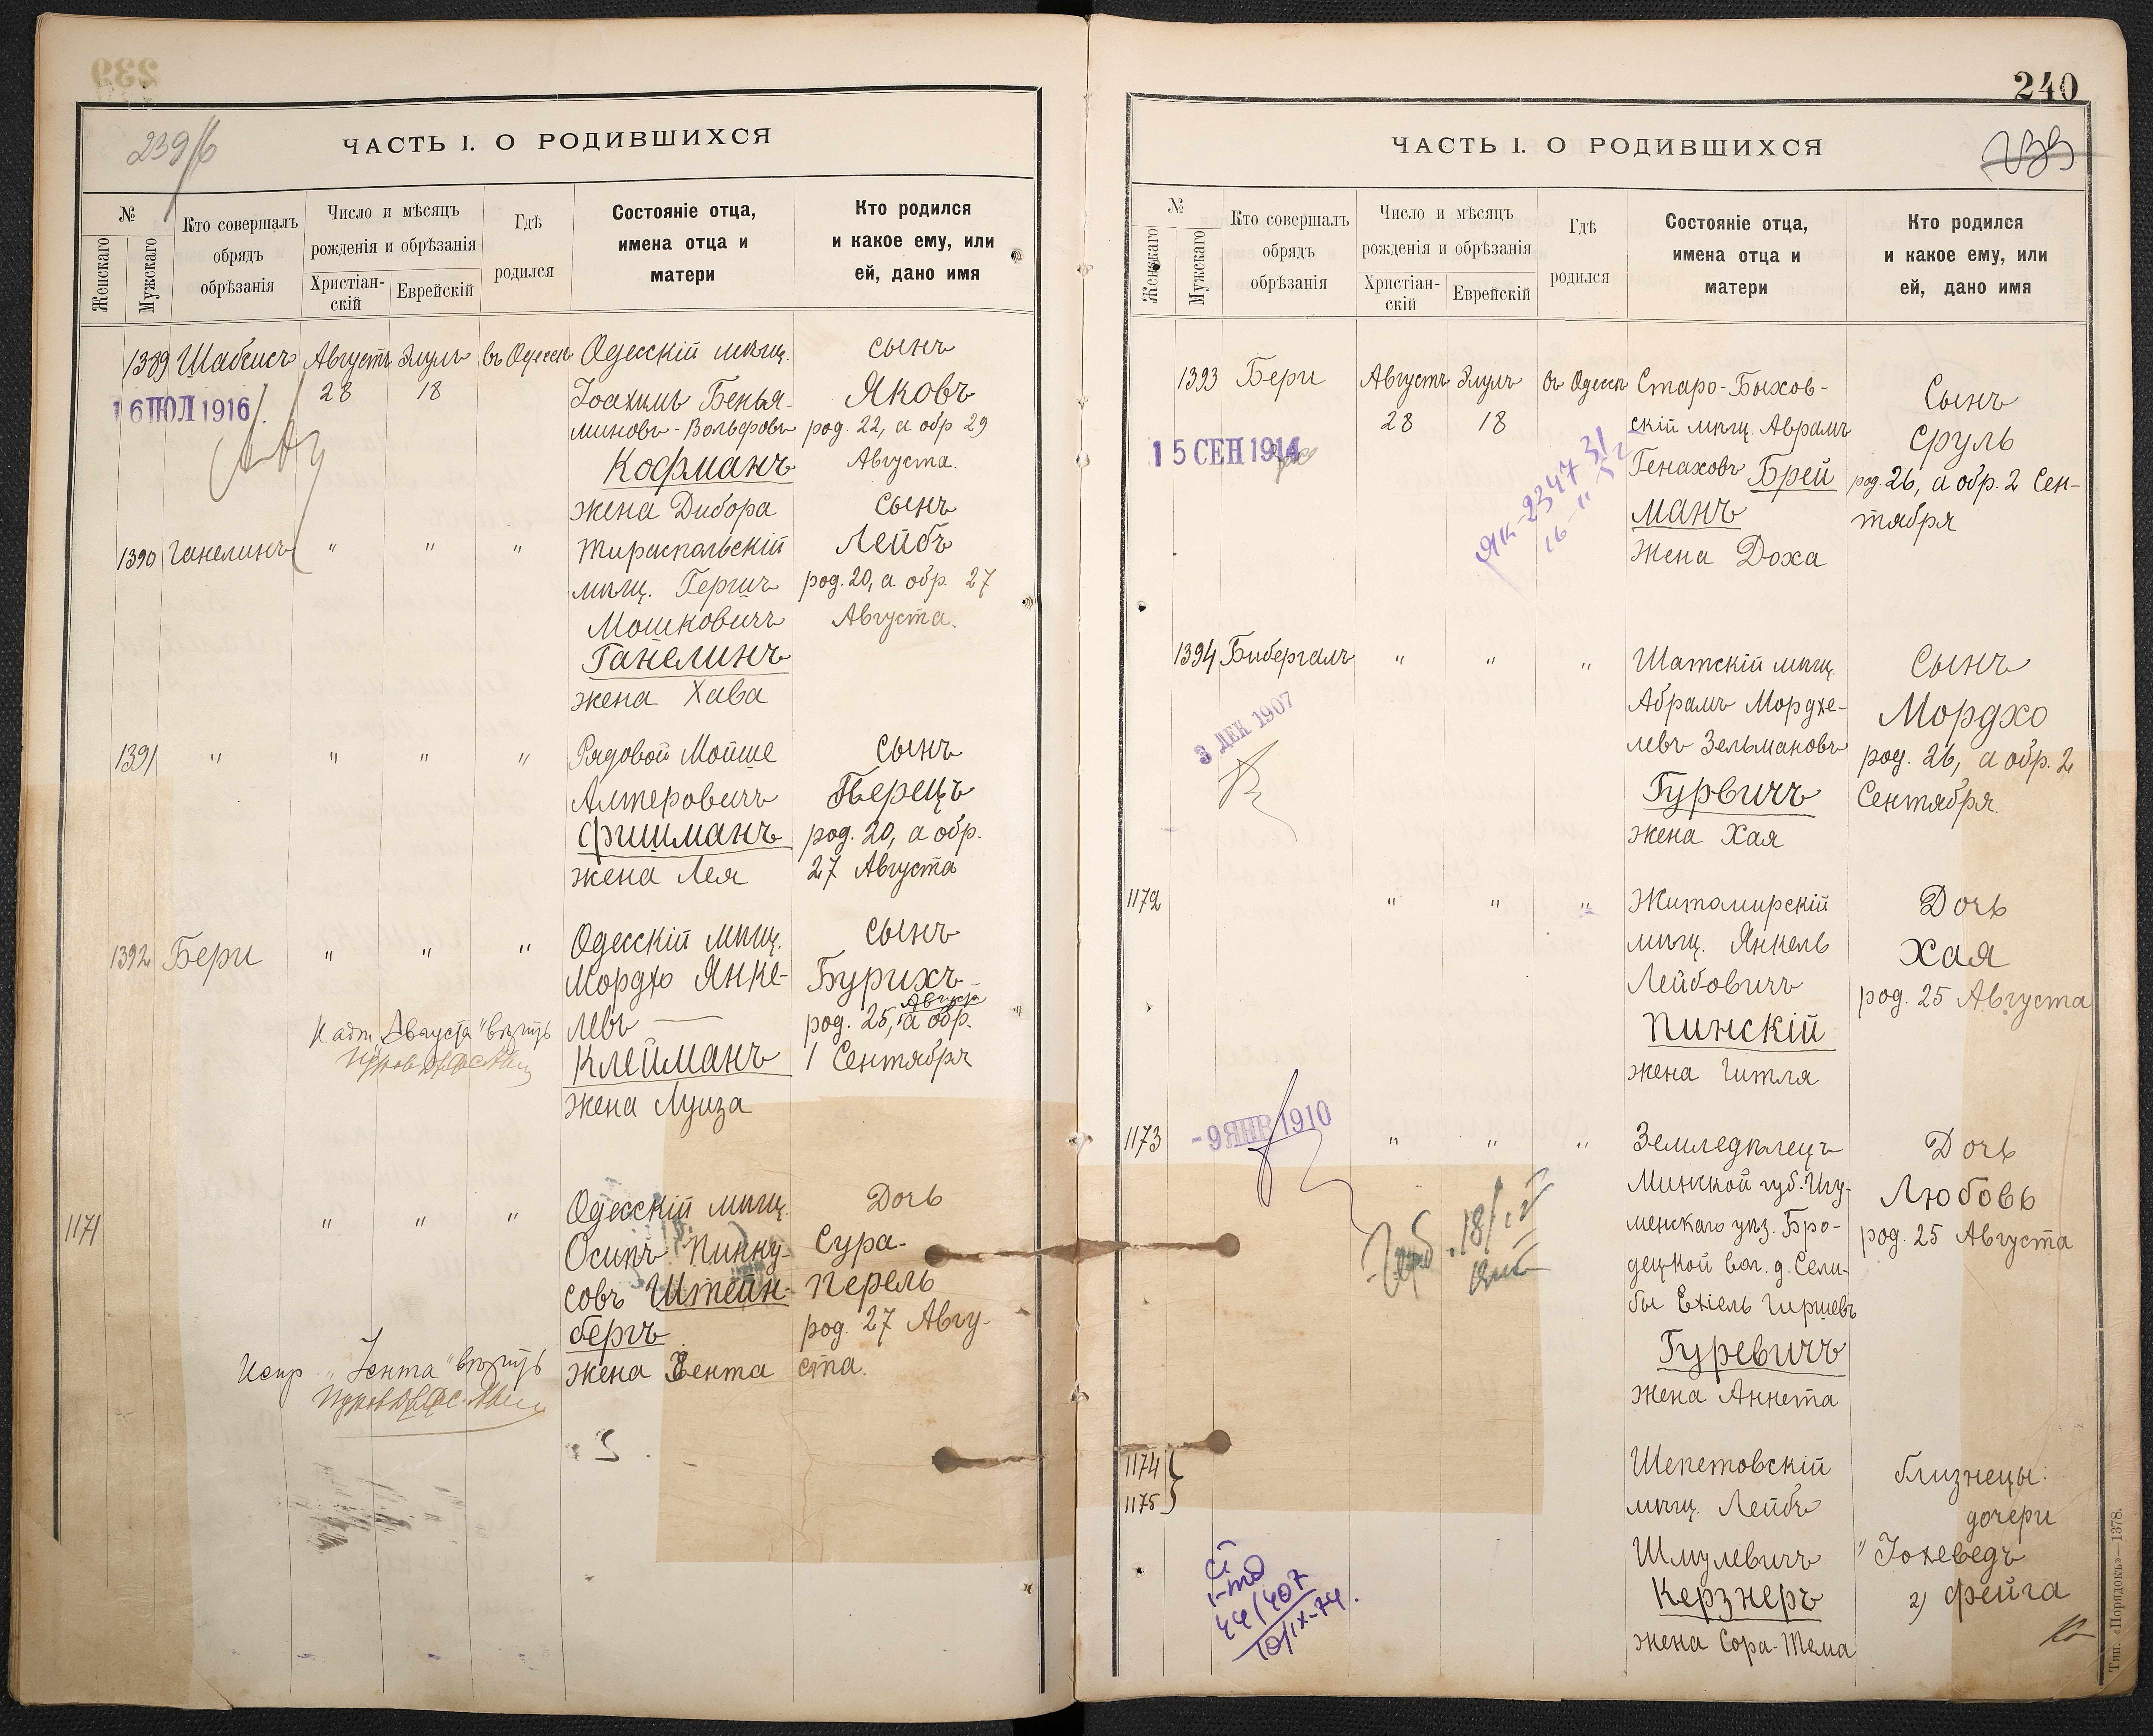 239
239/б
ЧАСТЬ I. О РОДИВШИХСЯ
№
Женскаго
Мужскаго
Кто совершалъ
обрядъ
обрѣзанія
Число и мѣсяцъ
рожденія и обрѣзанія
Христіан-
скій
Еврейскій
Гдѣ
родился
Состояніе отца,
имена отца и
матери
Кто родился
и какое ему, или
ей, дано имя
1389 Шабсисъ Августъ Элулъ въ Одессѣ Одесскій мѣщ. сынъ
28 18 Іоахимъ Бенья- Яковъ
16 ІЮЛ 1916
миновъ-Вольфовъ род. 22, а обр 29
Кофманъ Августа.
жена Дибора
1390 Ганелинъ " " " Тираспольскій сынъ Лейбъ
мѣщ. Гершъ род. 20, а обр. 27
Мошковичъ Августа.
Ганелинъ
жена Хава
1391 " " " " Рядовой Мойше сынъ
Алтеровичъ Перецъ
Фишманъ род. 20, а обр.
жена Лея 27 Августа
1392 Бери " " " Одесскій мѣщ. сынъ
Мордхо Янке- Бурихъ
левъ — род. 25, Августа а обр.
Клейманъ 1 Сентября
жена Луиза
Надп. "Августа" вѣрить
1171 " " " Одесскій мѣщ. Дочь
Осипъ Пинку- Сура-
совъ Штейн- Перель
бергъ род. 27 Авгу-
жена Зента ста.
Испр. "Зента" вѣрить
240
239
ЧАСТЬ I. О РОДИВШИХСЯ
№
Женскаго
Мужскаго
Кто совершалъ
обрядъ
обрѣзанія
Число и мѣсяцъ
рожденія и обрѣзанія
Христіан-
скій
Еврейскій
Гдѣ
родился
Состояніе отца,
имена отца и
матери
Кто родился
и какое ему, или
ей, дано имя
1393 Бери Августъ Элулъ въ Одессѣ Старо-Быхов- Сынъ
28 18 скій мѣщ. Аврамъ Сруль
15 СЕН 1914
Генаховъ Брей род. 26, а обр. 2 Сен-
манъ тября
жена Доха
ЯК-234731
1394 Бибергалъ " " " Шатскій мѣщ. Сынъ
Абрамъ Мордхе- Мордхо
левъ Зельмановъ род. 26, а обр. 2
Гурвичъ Сентября.
жена Хая
3 ДЕК 1907
1172 " " " Житомирскій Дочь
мѣщ. Янкель Хая
Лейбовичъ род. 25 Августа
Пинскій
жена Гитля
1173 " " " Земледѣлецъ Дочь
-9 ЯНВ 1910
Минской губ. Игу- Любовь
менскаго уѣз. Бро- род. 25 Августа
децкой вол. д. Сели-
бы Ехіель Гиршевъ
Гуревичъ
жена Аннета
1174 Шепетовскій близнецы:
1175 мѣщ. Лейбъ дочери
Шмулевичъ "Іохеведъ
Керзнеръ 2) Фейга
жена Сора-Тема
44/407
10/IX-74.
Тип. «Порядокъ»—1378.